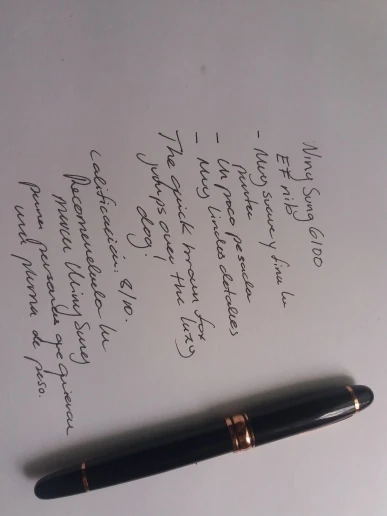 Niny Sung 6100
EF nib
- Muy suave y fina la
punta
- Un poco pesada
- Muy lindos detalles
The quick brown fox
jumps over the lazy
dog.
Calificación: 8/10.
Recomendada la
marca Niny Sung
para personas que quieran
una pluma de peso.